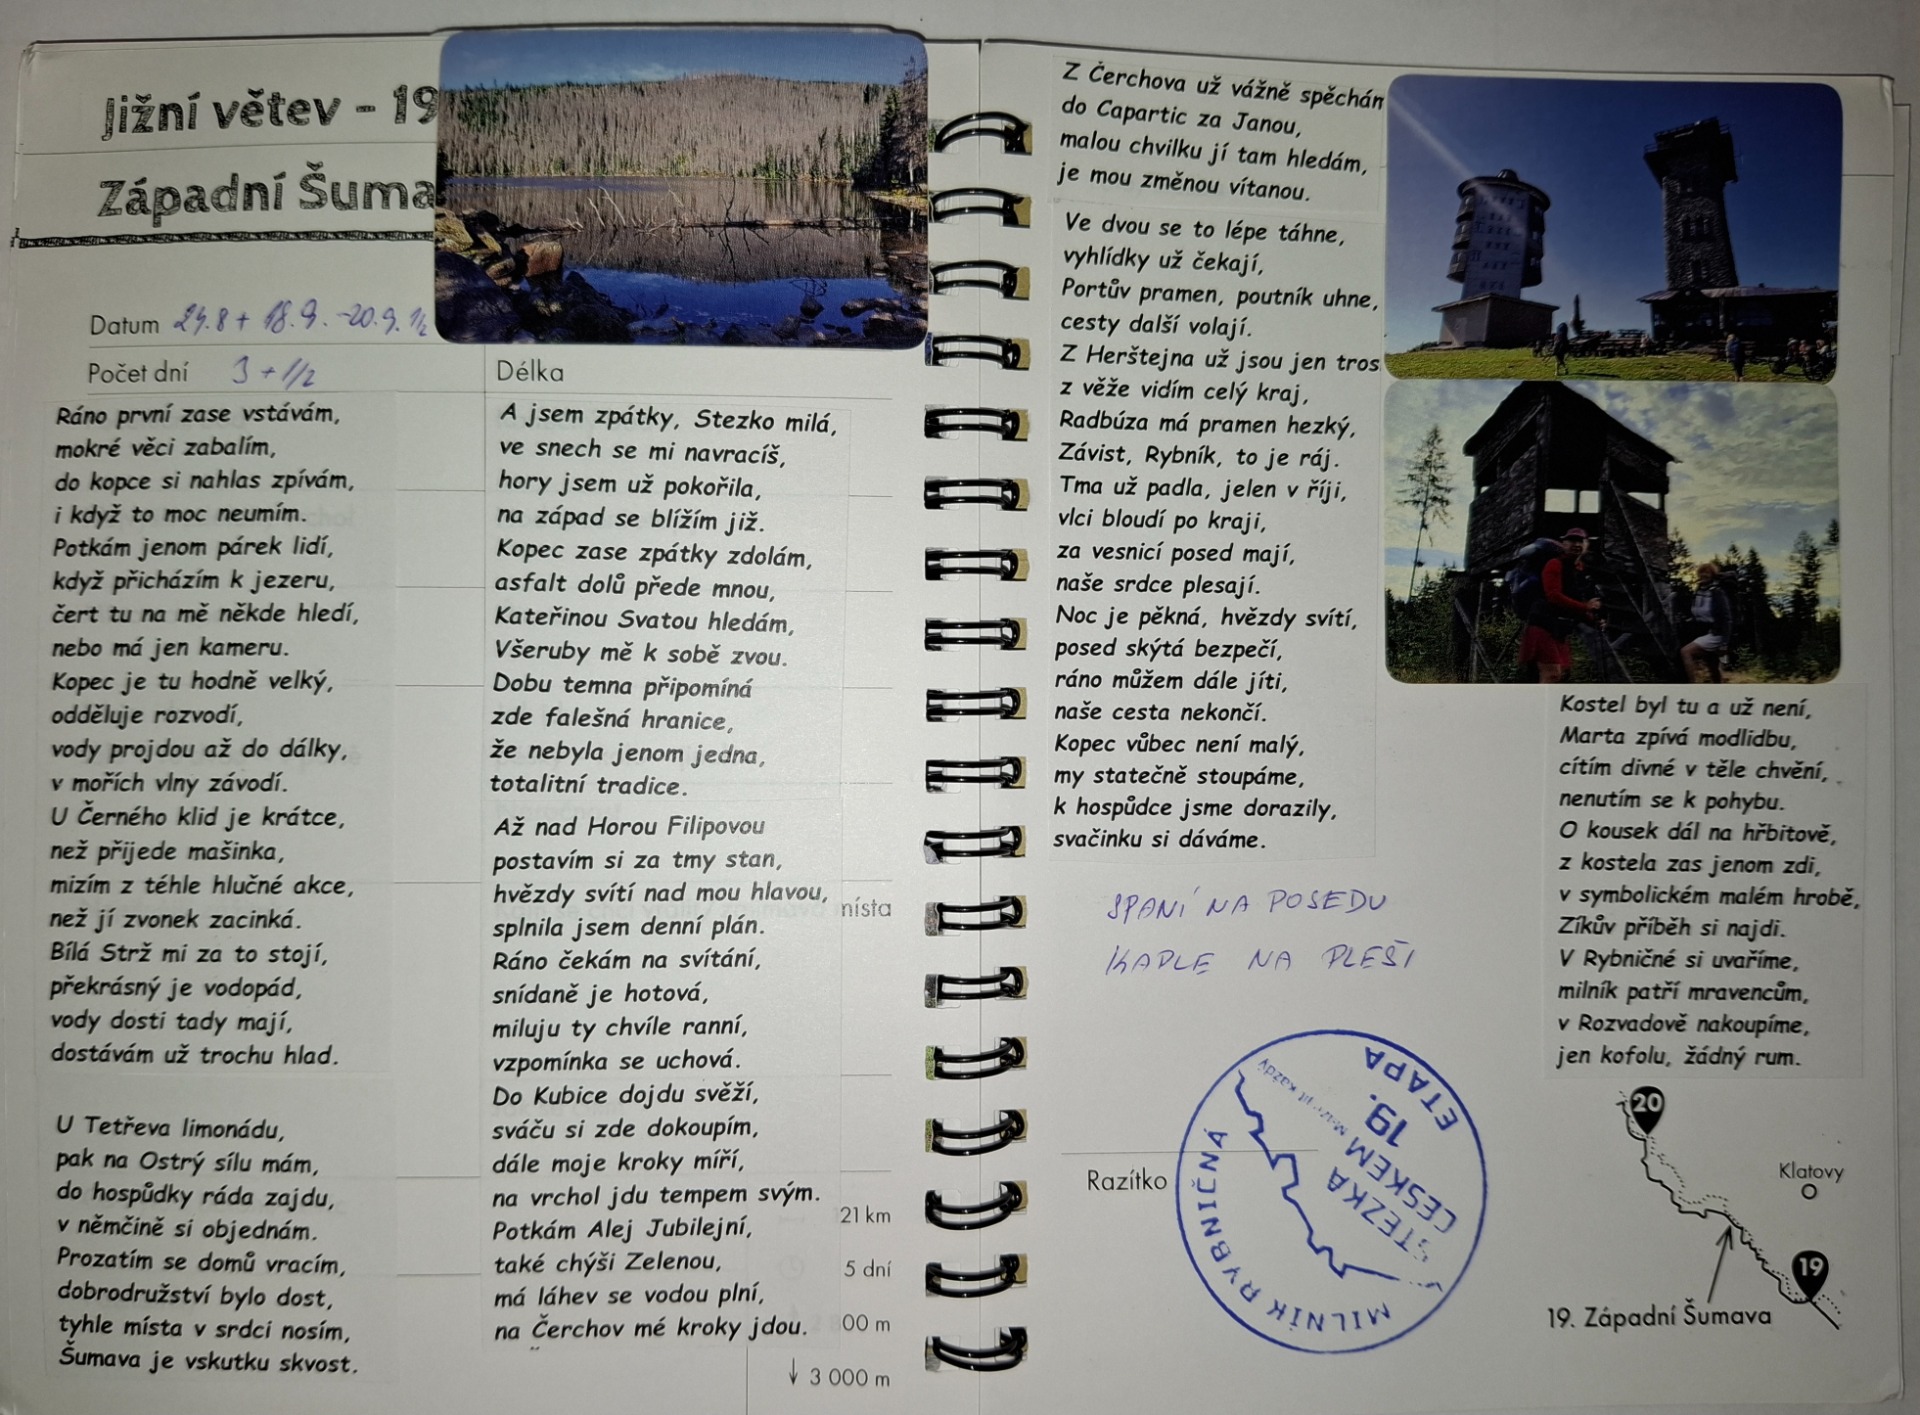 Jižní větev – 19
Západní Šuma
Datum 29.8 + 18.9.-20.9. 1/2
Počet dní 3 + 1/2
Délka
Ráno první zase vstávám,
mokré věci zabalím,
do kopce si nahlas zpívám,
i když to moc neumím.
Potkám jenom párek lidí,
když přicházím k jezeru,
čert tu na mě někde hledí,
nebo má jen kameru.
Kopec je tu hodně velký,
odděluje rozvodí,
vody projdou až do dálky,
v mořích vlny závodí.
U Černého klid je krátce,
než přijede mašinka,
mizím z téhle hlučné akce,
než jí zvonek zacinká.
Bílá Strž mi za to stojí,
překrásný je vodopád,
vody dosti tady mají,
dostávám už trochu hlad.
U Tetřeva limonádu,
pak na Ostrý sílu mám,
do hospůdky ráda zajdu,
v němčině si objednám.
Prozatím se domů vracím,
dobrodružství bylo dost,
tyhle místa v srdci nosím,
Šumava je vskutku skvost.
A jsem zpátky, Stezko milá,
ve snech se mi navracíš,
hory jsem už pokořila,
na západ se blížím již.
Kopec zase zpátky zdolám,
asfalt dolů přede mnou,
Kateřinou Svatou hledám,
Všeruby mě k sobě zvou.
Dobu temna připomíná
zde falešná hranice,
že nebyla jenom jedna,
totalitní tradice.
Až nad Horou Filipovou
postavím si za tmy stan,
hvězdy svítí nad mou hlavou,
splnila jsem denní plán.
Ráno čekám na svítání,
snídaně je hotová,
miluju ty chvíle ranní,
vzpomínka se uchová.
Do Kubice dojdu svěží,
sváču si zde dokoupím,
dále moje kroky míří,
na vrchol jdu tempem svým.
Potkám Alej Jubilejní,
také chýši Zelenou,
má láhev se vodou plní,
na Čerchov mé kroky jdou.
místa
21 km
5 dní
00 m
↓ 3 000 m
Z Čerchova už vážně spěchám
do Capartic za Janou,
malou chvilku jí tam hledám,
je mou změnou vítanou.
Ve dvou se to lépe táhne,
vyhlídky už čekají,
Portův pramen, poutník uhne,
cesty další volají.
Z Herštejna už jsou jen tros
z věže vidím celý kraj,
Radbúza má pramen hezký,
Závist, Rybník, to je ráj.
Tma už padla, jelen v říji,
vlci bloudí po kraji,
za vesnicí posed mají,
naše srdce plesají.
Noc je pěkná, hvězdy svítí,
posed skýtá bezpečí,
ráno můžem dále jíti,
naše cesta nekončí.
Kopec vůbec není malý,
my statečně stoupáme,
k hospůdce jsme dorazily,
svačinku si dáváme.
SPANÍ NA POSEDU
KAPLE NA PLEŠI
Kostel byl tu a už není,
Marta zpívá modlidbu,
cítím divné v těle chvění,
nenutím se k pohybu.
O kousek dál na hřbitově,
z kostela zas jenom zdi,
v symbolickém malém hrobě,
Zíkův příběh si najdi.
V Rybničné si uvaříme,
milník patří mravencům,
v Rozvadově nakoupíme,
jen kofolu, žádný rum.
Razítko
MILNÍK RYBNIČNÁ
19.
ETAPA
STEZKA
ČESKEM
každý
20
Klatovy
19
19. Západní Šumava